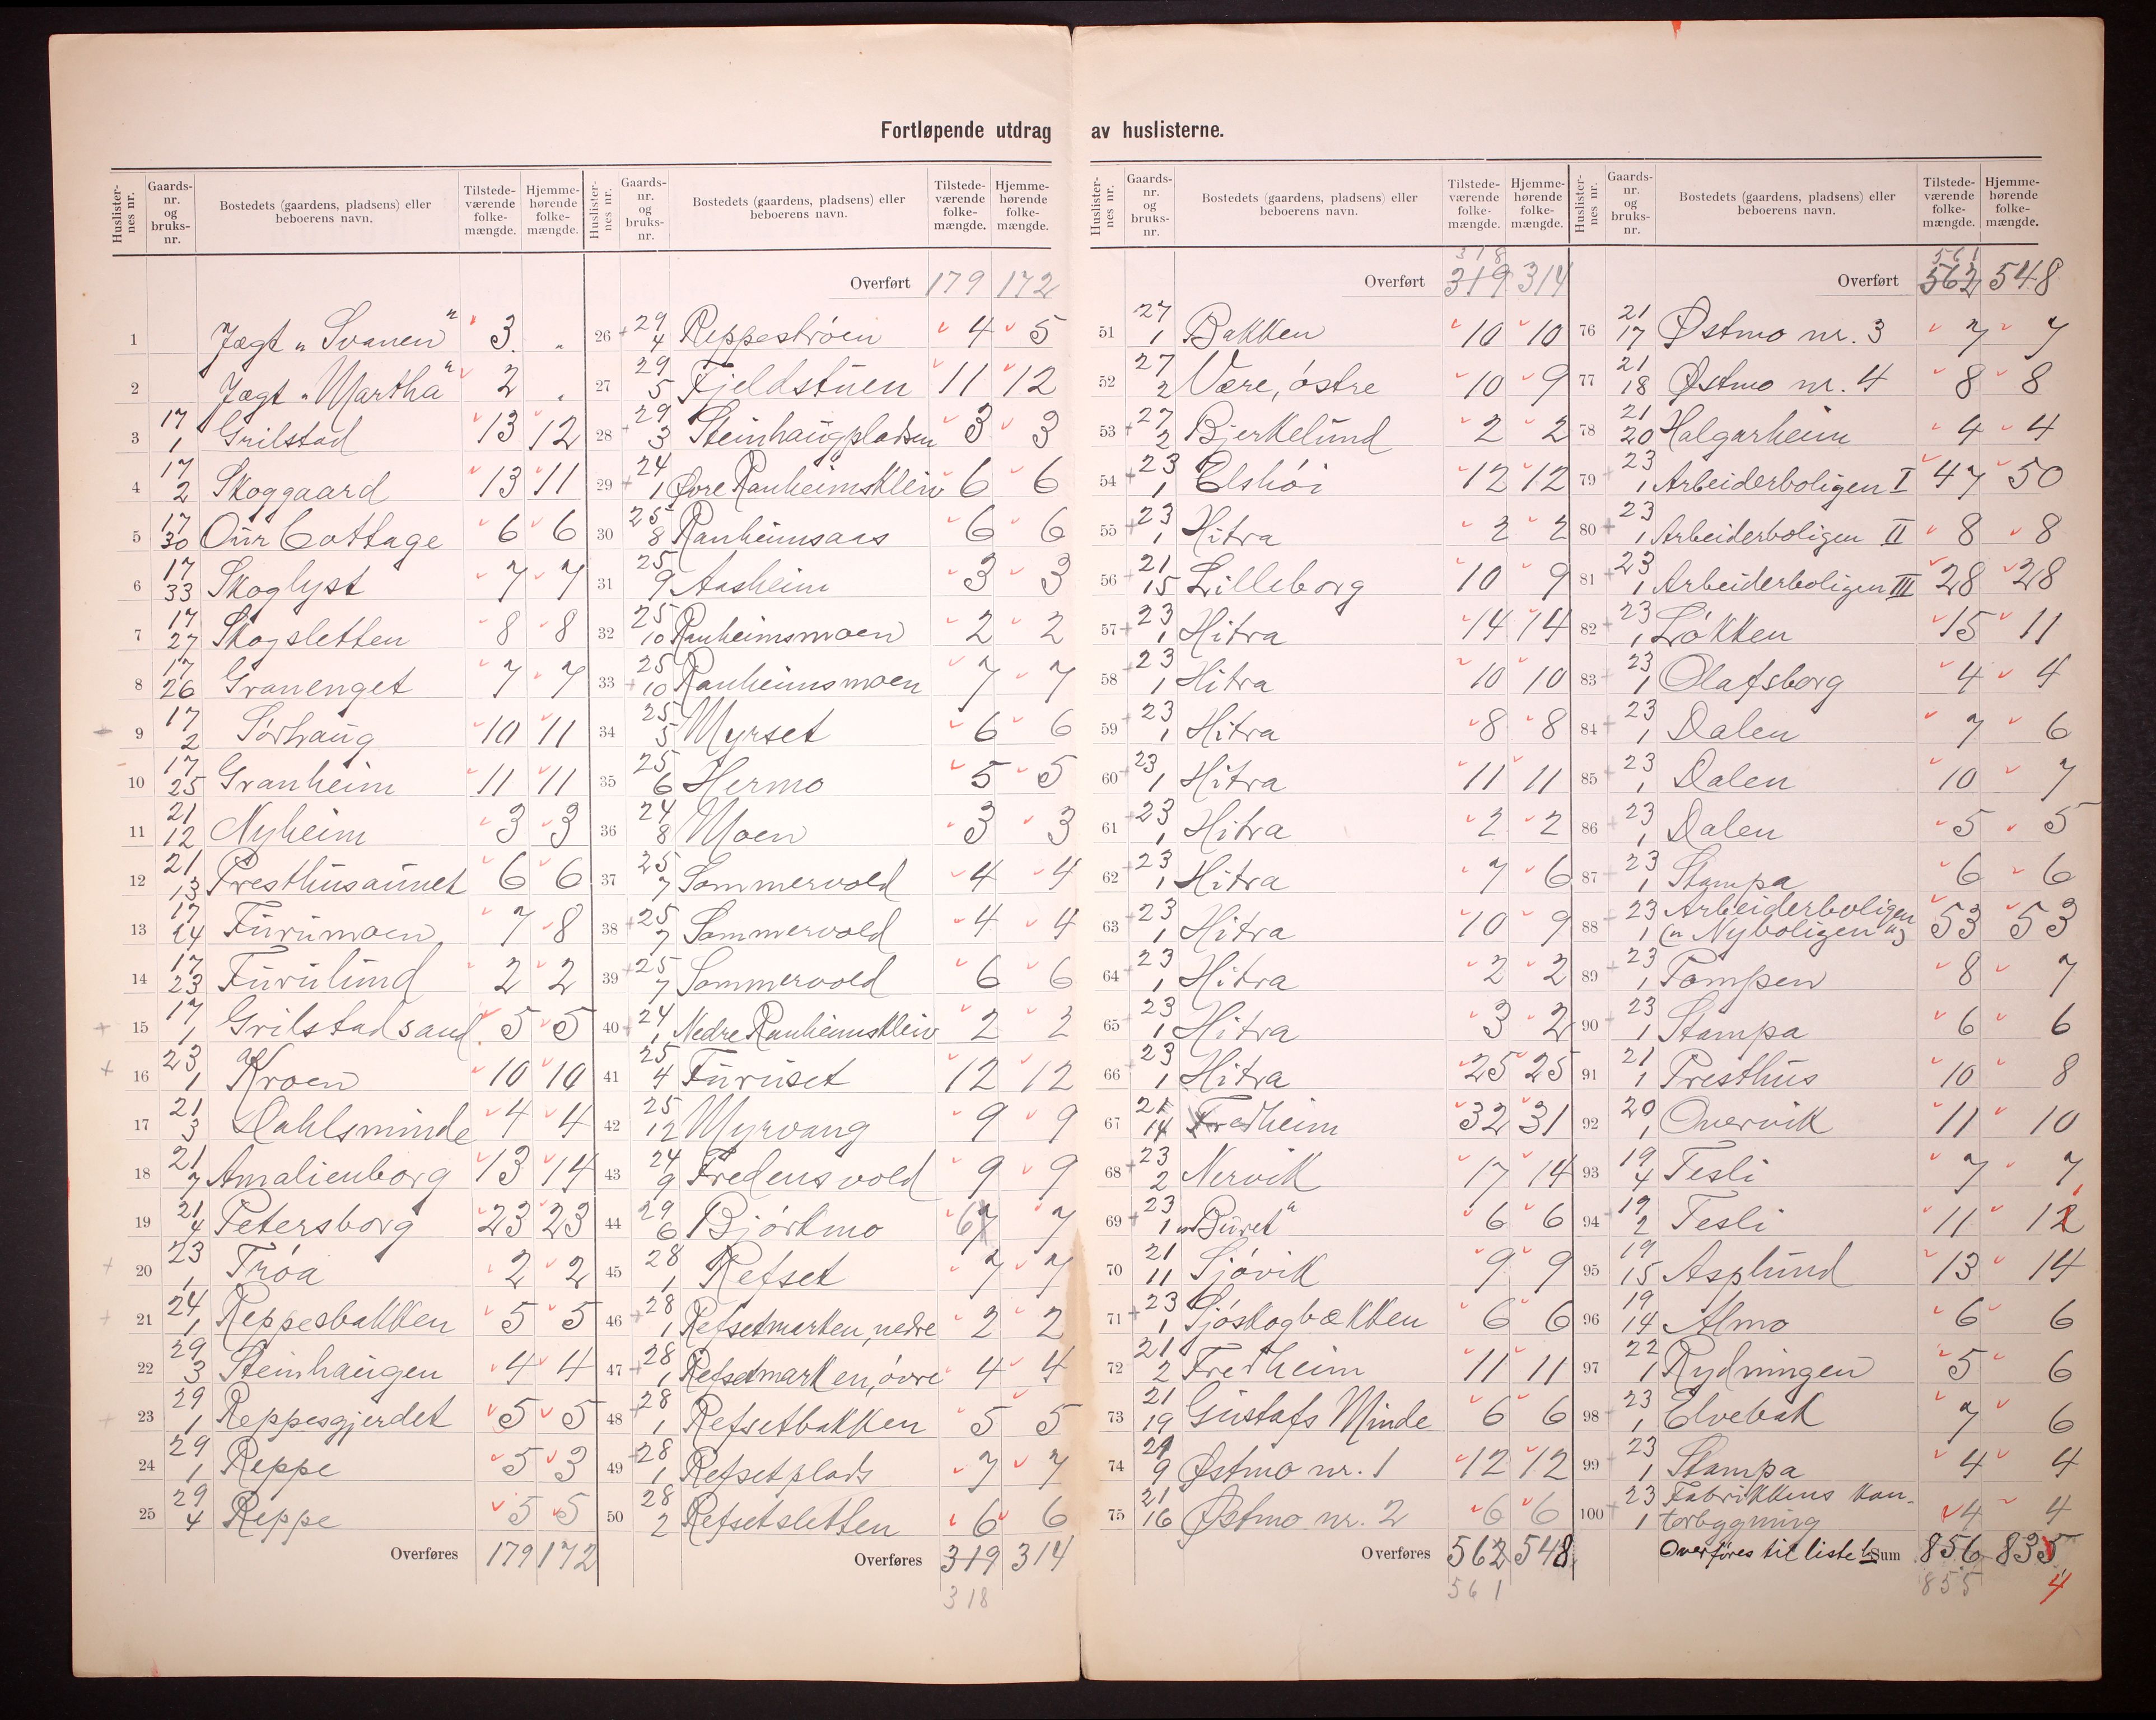 Fortløpende utdrag av huslisterne.
Huslisternes nr. | Gaards-nr. og bruks-nr. | Bostedets (gaardens, pladsens) eller beboerens navn. | Tilstede-værende folke-mængde. | Hjemme-hørende folke-mængde.
1 Jægt „Svanen" 3 „
2 Jægt „Martha" 2 „
3 17/1 Grilstad 13 12
4 17/2 Skoggaard 13 11
5 17/30 Our Cottage 6 6
6 17/33 Skoglyst 7 7
7 17/27 Skogsletten 8 8
8 17/26 Granenget 7 7
9 17/2 Sørhaug 10 11
10 17/25 Granheim 11 11
11 21/12 Nyheim 3 3
12 21/13 Presthusaunet 6 6
13 17/24 Furumoen 7 8
14 17/23 Furulund 2 2
15 17/1 Grilstadsand. 5 5
16 23/1 Kroen 10 10
17 21/3 Dahlsminde 4 4
18 21/7 Amalienborg 13 14
19 21/4 Petersborg 23 23
20 23/1 Trøa 2 2
21 24/1 Reppesbakken 5 5
22 29/3 Steinhaugen 4 4
23 29/1 Reppesgjerdet 5 5
24 29/1 Reppe 5 3
25 29/4 Reppe 5 5
Overføres 179 172
Huslisternes nr. | Gaards-nr. og bruks-nr. | Bostedets (gaardens, pladsens) eller beboerens navn. | Tilstede-værende folke-mængde. | Hjemme-hørende folke-mængde.
Overført 179 172
26 29/4 Reppestrøen 4 5
27 29/5 Fjeldstuen 11 12
28 29/3 Steinhaugpladsen 3 3
29 24/1 Øvre Ranheimsklein 6 6
30 25/8 Ranheimsaas 6 6
31 25/9 Aasheim 3 3
32 25/10 Ranheimsmoen 2 2
33 25/10 Ranheimsmoen 7 7
34 25/5 Myrset 6 6
35 25/6 Hermo 5 5
36 24/8 Moen 3 3
37 25/7 Sommervold 4 4
38 25/7 Sommervold 4 4
39 25/7 Sommervold 6 6
40 24/1 Nedre Ranheimsklein 2 2
41 25/4 Furuset 12 12
42 25/12 Myrvang 9 9
43 24/9 Fredensvold 9 9
44 29/6 Bjørkmo 67 7
45 28/1 Refset 7 7
46 28/1 Refsetmarken, nedre 2 2
47 28/1 Refsetmarken, øvre 4 4
48 28/1 Refsetbakken 5 5
49 28/1 Refsetplads 7 7
50 28/2 Refsetsletten 6 6
Overføres 319 314
318
Huslisternes nr. | Gaards-nr. og bruks-nr. | Bostedets (gaardens, pladsens) eller beboerens navn. | Tilstede-værende folke-mængde. | Hjemme-hørende folke-mængde.
318
Overført 319 314
51 27/1 Bakken 10 10
52 27/2 Være, østre 10 9
53 27/2 Bjerkelund 2 2
54 23/1 Elshøi 12 12
55 23/1 Hitra 2 2
56 21/15 Lilleborg 10 9
57 23/1 Hitra 14 14
58 23/1 Hitra 10 10
59 23/1 Hitra 8 8
60 23/1 Hitra 11 11
61 23/1 Hitra 2 2
62 23/1 Hitra 7 6
63 23/1 Hitra 10 9
64 23/1 Hitra 2 2
65 23/1 Hitra 3 2
66 23/1 Hitra 25 25
67 21/14 Fredheim 32 31
68 23/2 Nervik 17 14
69 23/1 „Buret" 6 6
70 21/11 Sjøvik 9 9
71 23/1 Sjøskogbækken 6 6
72 21/2 Fredheim 11 11
73 21/19 Gustafs Minde 6 6
74 21/9 Østmo nr. 1 12 12
75 21/16 Østmo nr. 2 6 6
Overføres 562 548
561
Huslisternes nr. | Gaards-nr. og bruks-nr. | Bostedets (gaardens, pladsens) eller beboerens navn. | Tilstede-værende folke-mængde. | Hjemme-hørende folke-mængde.
561
Overført 562 548
76 21/17 Østmo nr. 3 7 7
77 21/18 Østmo nr. 4 8 8
78 21/20 Halgarheim 4 4
79 23/1 Arbeiderboligen I 47 50
80 23/1 Arbeiderboligen II 8 8
81 23/1 Arbeiderboligen III 28 28
82 23/1 Løkken 15 11
83 23/1 Olafsborg 4 4
84 23/1 Dalen 7 6
85 23/1 Dalen 10 7
86 23/1 Dalen 5 5
87 23/1 Stampa 6 6
88 23/1 Arbeiderboligen („Nyboligen") 53 53
89 23/1 Tampen 8 7
90 23/1 Stampa 6 6
91 21/1 Presthus 10 8
92 20/1 Overvik 11 10
93 19/4 Tesli 7 7
94 19/2 Tesli 11 12
95 19/15 Asplund 13 14
96 19/14 Almo 6 6
97 22/1 Rydningen 5 6
98 23/1 Elvebak 7 6
99 23/1 Stampa 4 4
100 23/1 Fabrikkens kontorbygning 4 4
Overføres til liste b Sum 856 835
855 4